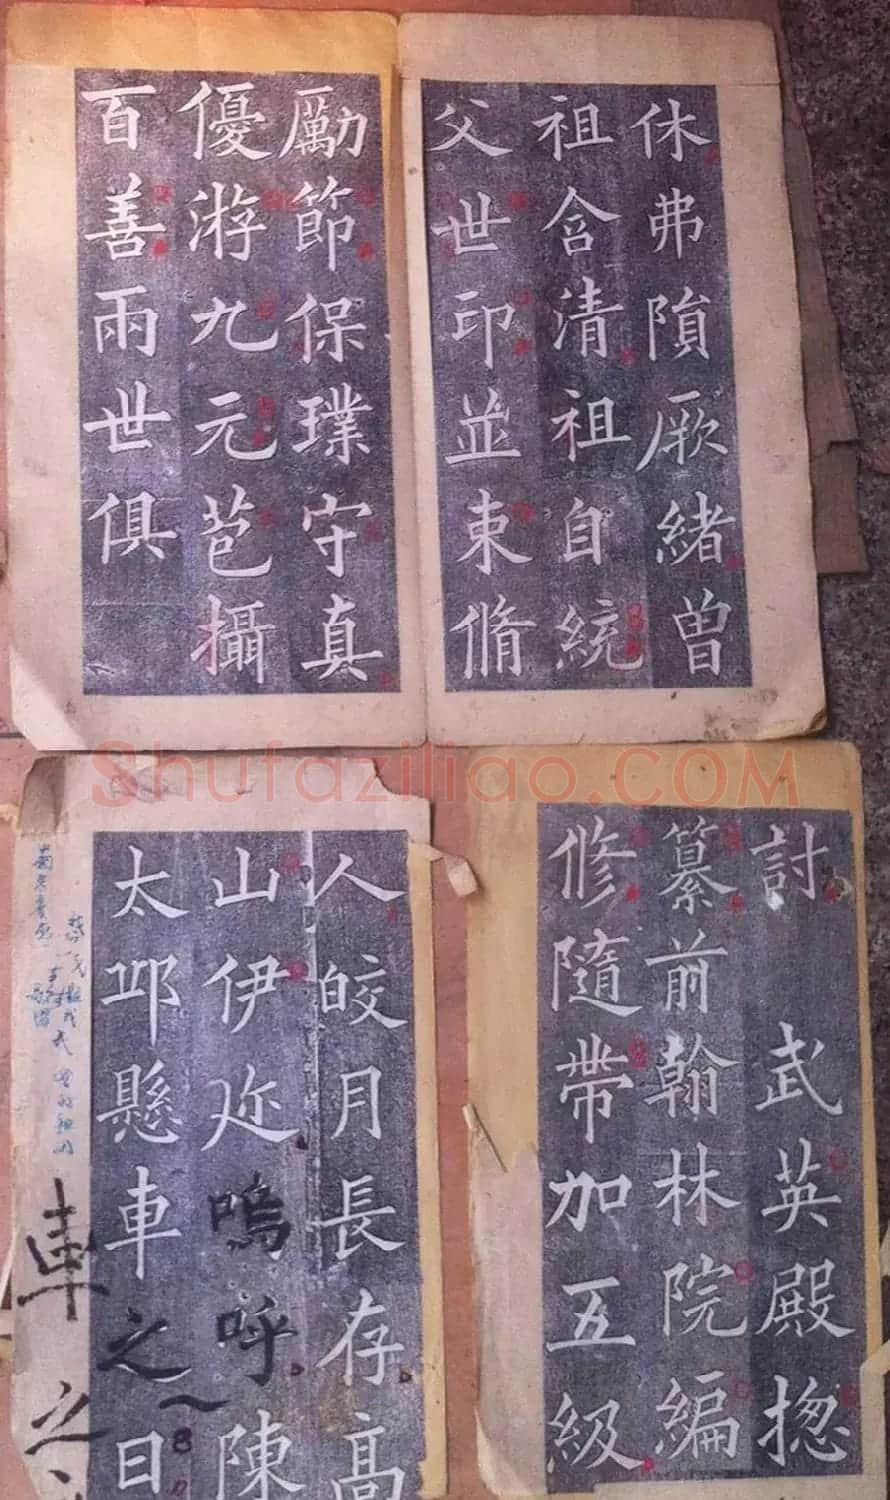 休弗隕厥緒曽
祖含清祖自統
父世印並束脩
勵節保璞守真
優游九元苞攝
百善兩世俱
討 武英殿揔
纂前翰林院編
修隨帶加五級
人皎月長存高
山伊迩嗚呼陳
太邱懸車之日
車之
Shufaziliao.COM